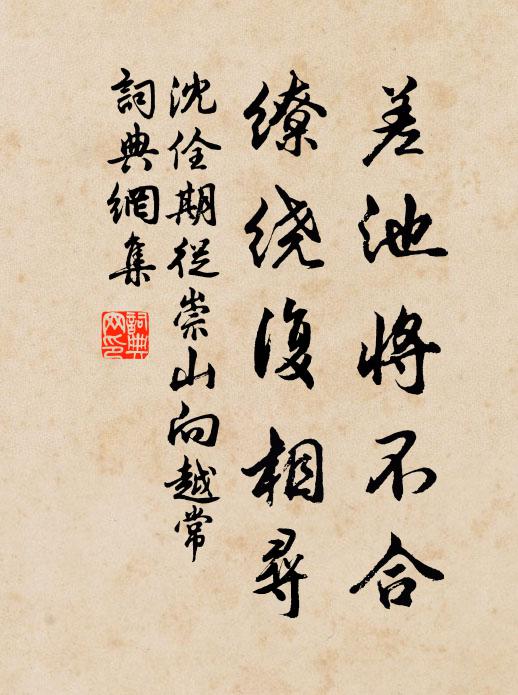 差池将不合
缭绕復相尋
沈佺期從崇山向越常
詞典網集
詞典
网印